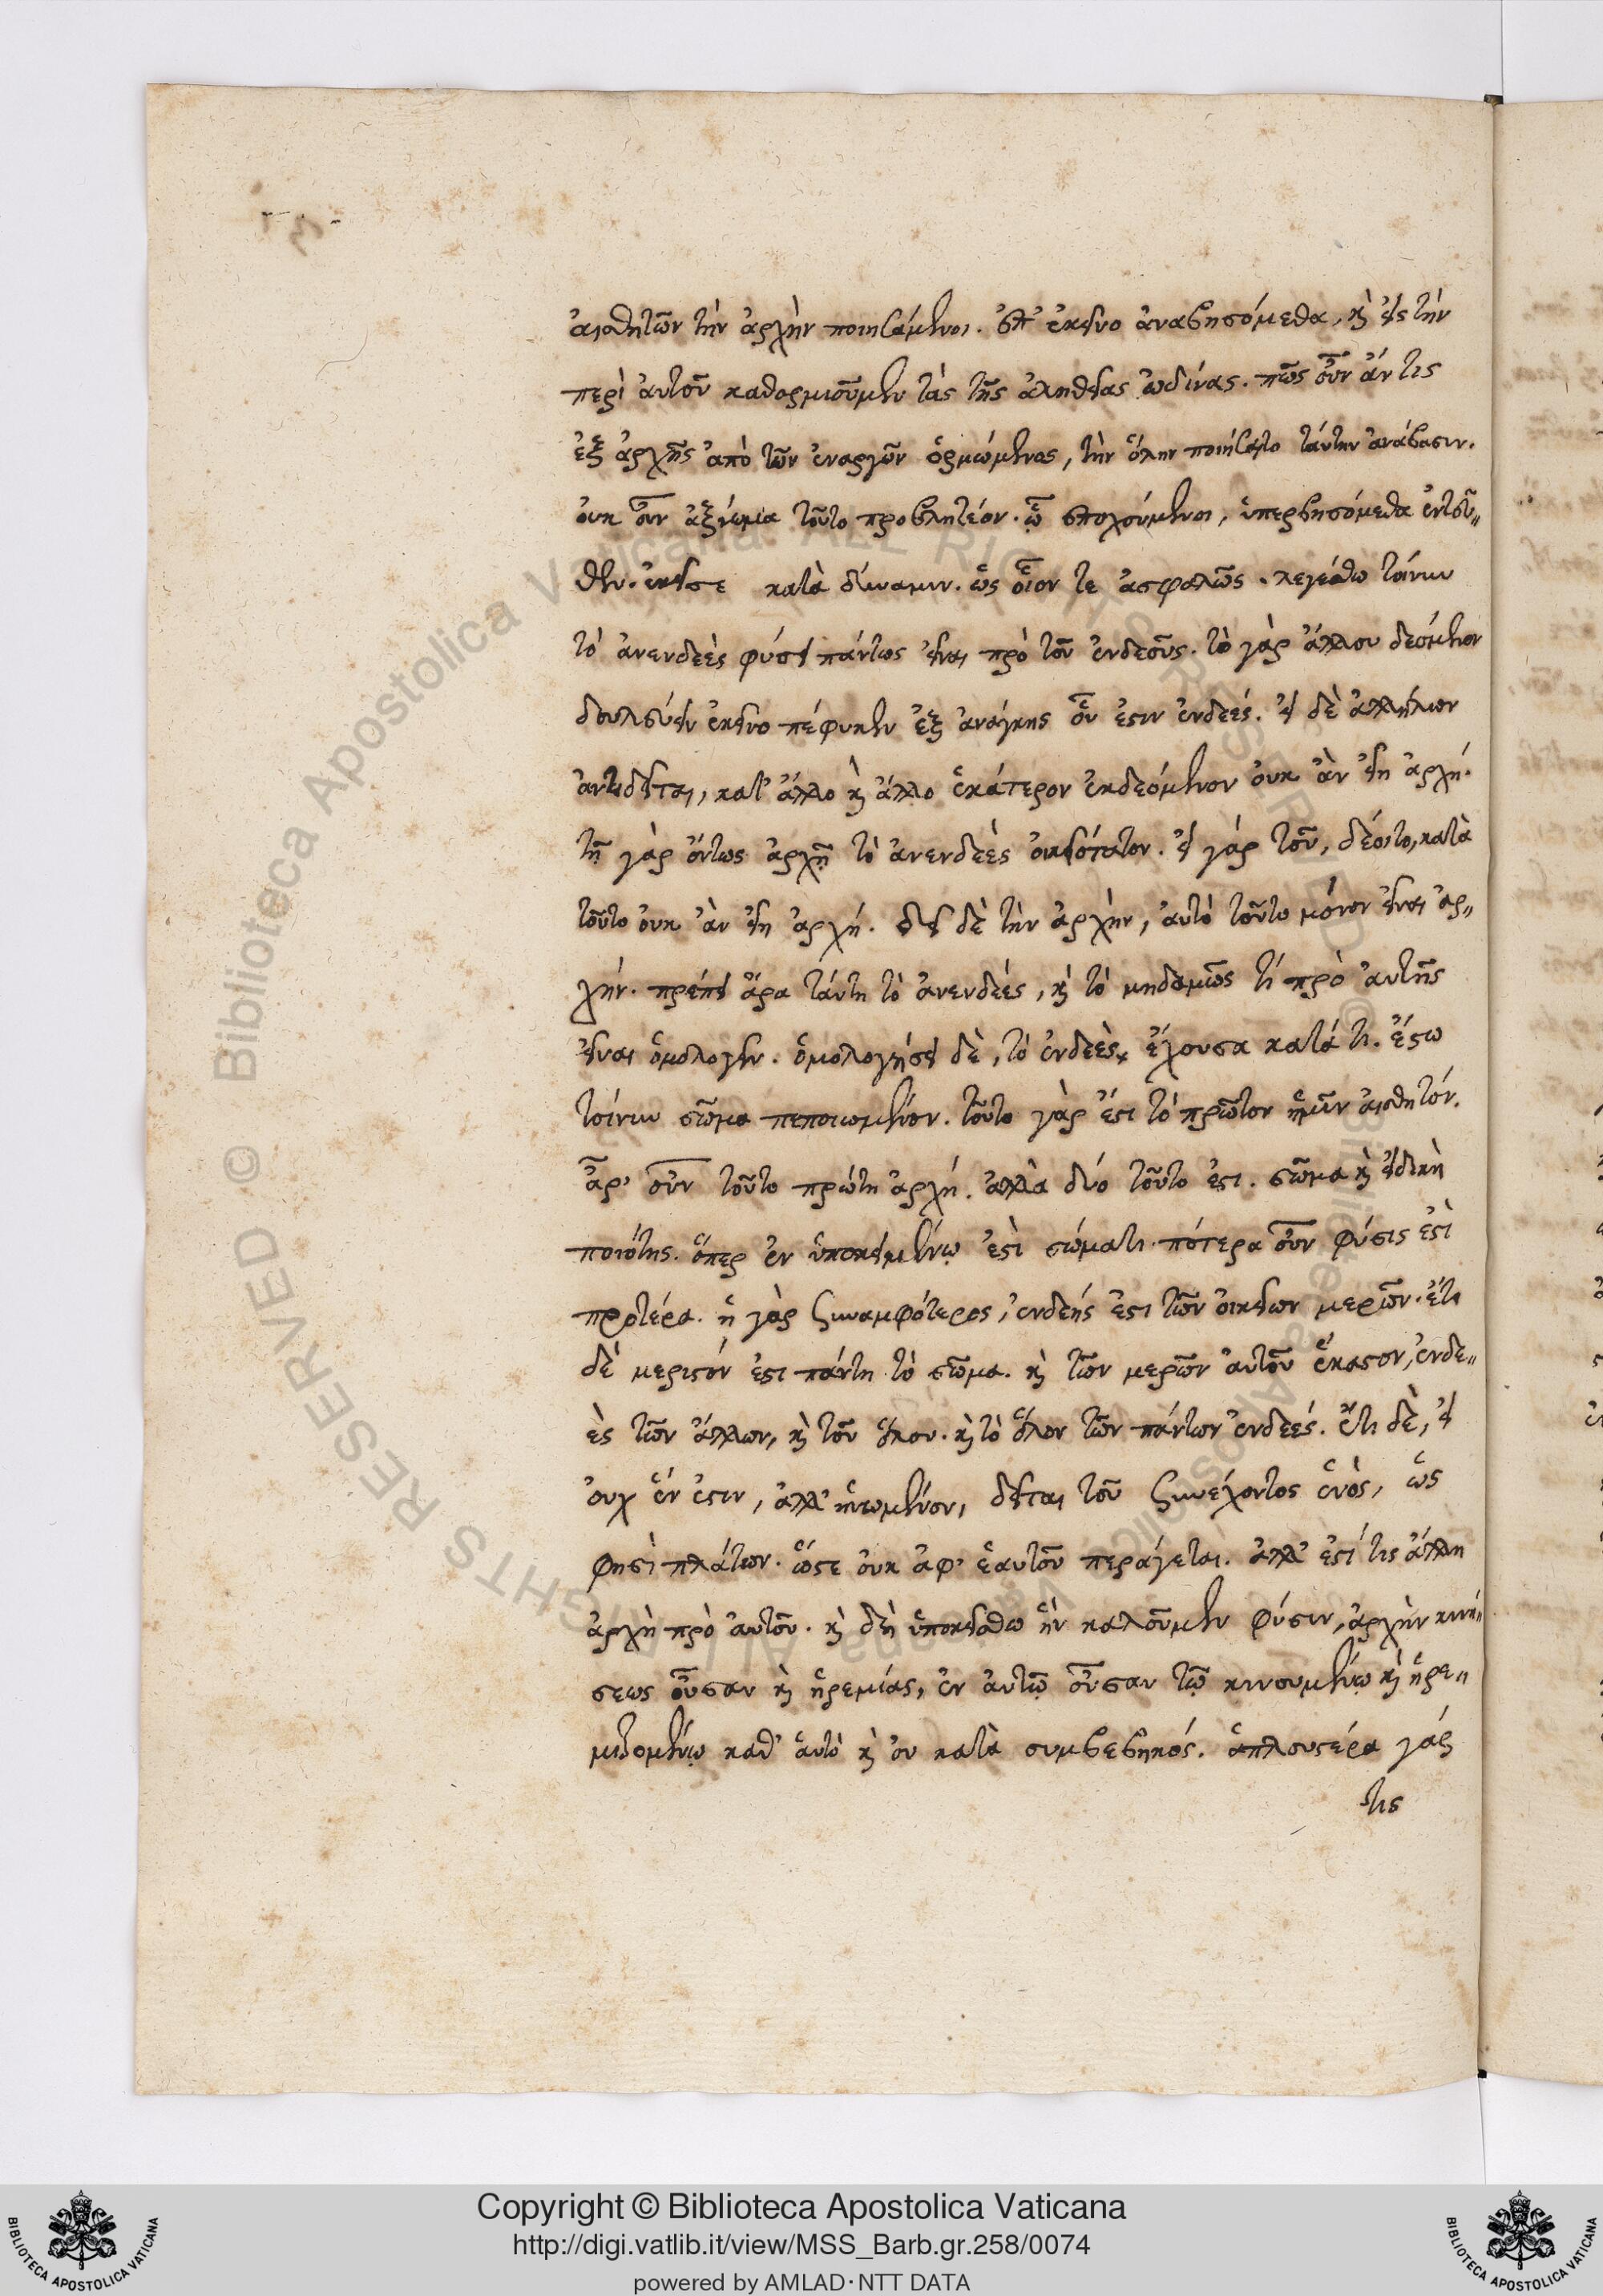 αἰσθητῶν τὴν ἀρχὴν ποιησάμενοι. ἐπ' ἐκεῖνο ἀναβησόμεθα, καὶ εἰς τὴν
περὶ αὐτοῦ καθορμιοῦμεν τὰς τῆς ἀληθείας ὠδίνας. πῶς οὖν ἄν τις
ἐξ ἀρχῆς ἀπὸ τῶν ἐναργῶν ὁρμώμενος, τὴν ὅλην ποιήσαιτο ταύτην ἀνάβασιν.
οὐκ οὖν ἀξίωμα τοῦτο προβλητέον. ᾧ ἐποχούμενοι, ὑπερβησόμεθα ἐντεῦ„
θεν. ἐκεῖσε κατὰ δύναμιν. ὡς οἷον τε ἀσφαλῶς. λεγέσθω τοίνυν
τὸ ἀνενδεὲς φύσει πάντως εἶναι πρὸ τοῦ ἐνδεοῦς. τὸ γὰρ ἄλλου δεόμενον
δουλεύειν ἐκείνο πέφυκεν ἐξ ἀνάγκης οὗ ἐστιν ἐνδεές. εἰ δὲ ἀλλήλων
ἀντιδεῖται, κατ' ἄλλο καὶ ἄλλο ἑκάτερον ἐκδεόμενον οὐκ ἂν εἴη ἀρχή.
τῇ γὰρ ὄντως ἀρχῇ τὸ ἀνενδεὲς οἰκειότατον. εἰ γάρ τοῦ, δέοιτο, κατὰ
τοῦτο οὐκ ἂν εἴη ἀρχή. δεῖ δὲ τὴν ἀρχὴν, αὐτὸ τοῦτο μόνον εἶναι ἀρ„
χήν. πρέπει ἄρα ταύτῃ τὸ ἀνενδεές, καὶ τὸ μηδαμῶς τί πρὸ αὐτῆς
εἶναι ὁμολογεῖν. ὁμολογήσει δὲ, τὸ ἐνδεὲς, ἔχουσα κατά τι. ἔστω
τοίνυν σῶμα πεποιωμένον. τοῦτο γὰρ ἔστι τὸ πρῶτον ἡμῖν αἰσθητόν.
ἆρ' οὖν τοῦτο πρώτη ἀρχή. ἀλλὰ δύο τοῦτο ἐστι. σῶμα καὶ εἰδικὴ
ποιότης. ὅπερ ἐν ὑποκειμένῳ ἐστὶ σώματι. πότερα οὖν φύσις ἐστὶ
προτέρα. ἡ γὰρ ξυναμφότερος, ἐνδεής ἐστι τῶν οἰκείων μερῶν. ἔτι
δὲ μεριστόν ἐστι πάντη τὸ σῶμα. καὶ τῶν μερῶν αὐτοῦ ἕκαστον, ἐνδε„
ὲς τῶν ἄλλων, καὶ τοῦ ὅλου. καὶ τὸ ὅλον τῶν πάντων ἐνδεές. ἔτι δὲ, εἰ
οὐχ ἕν ἐστιν, ἀλλ' ἡνωμένον, δεῖται τοῦ ξυνέχοντος ἑνὸς, ὥς
φησὶ πλάτων. ὥστε οὐκ ἀφ' ἑαυτοῦ περάγεται. ἀλλ' ἐστί τις ἄλλη
ἀρχὴ πρὸ αὐτοῦ. καὶ δὴ ὑποκείσθω ἣν καλοῦμεν φύσιν, ἀρχὴν κινή„
σεως οὖσαν καὶ ἠρεμίας, ἐν αὐτῷ οὖσαν τῷ κινουμένῳ καὶ ἠρε„
μιζομένῳ καθ' αὑτὸ καὶ οὐ κατὰ συμβεβηκός. ἁπλουστέρα γάρ
τις
Copyright © Biblioteca Apostolica Vaticana
http://digi.vatlib.it/view/MSS_Barb.gr.258/0074
powered by AMLAD·NTT DATA
BIBLIOTECA APOSTOLICA VATICANA
BIBLIOTECA APOSTOLICA VATICANA
© Biblioteca Apostolica Vaticana. ALL RIGHTS RESERVED